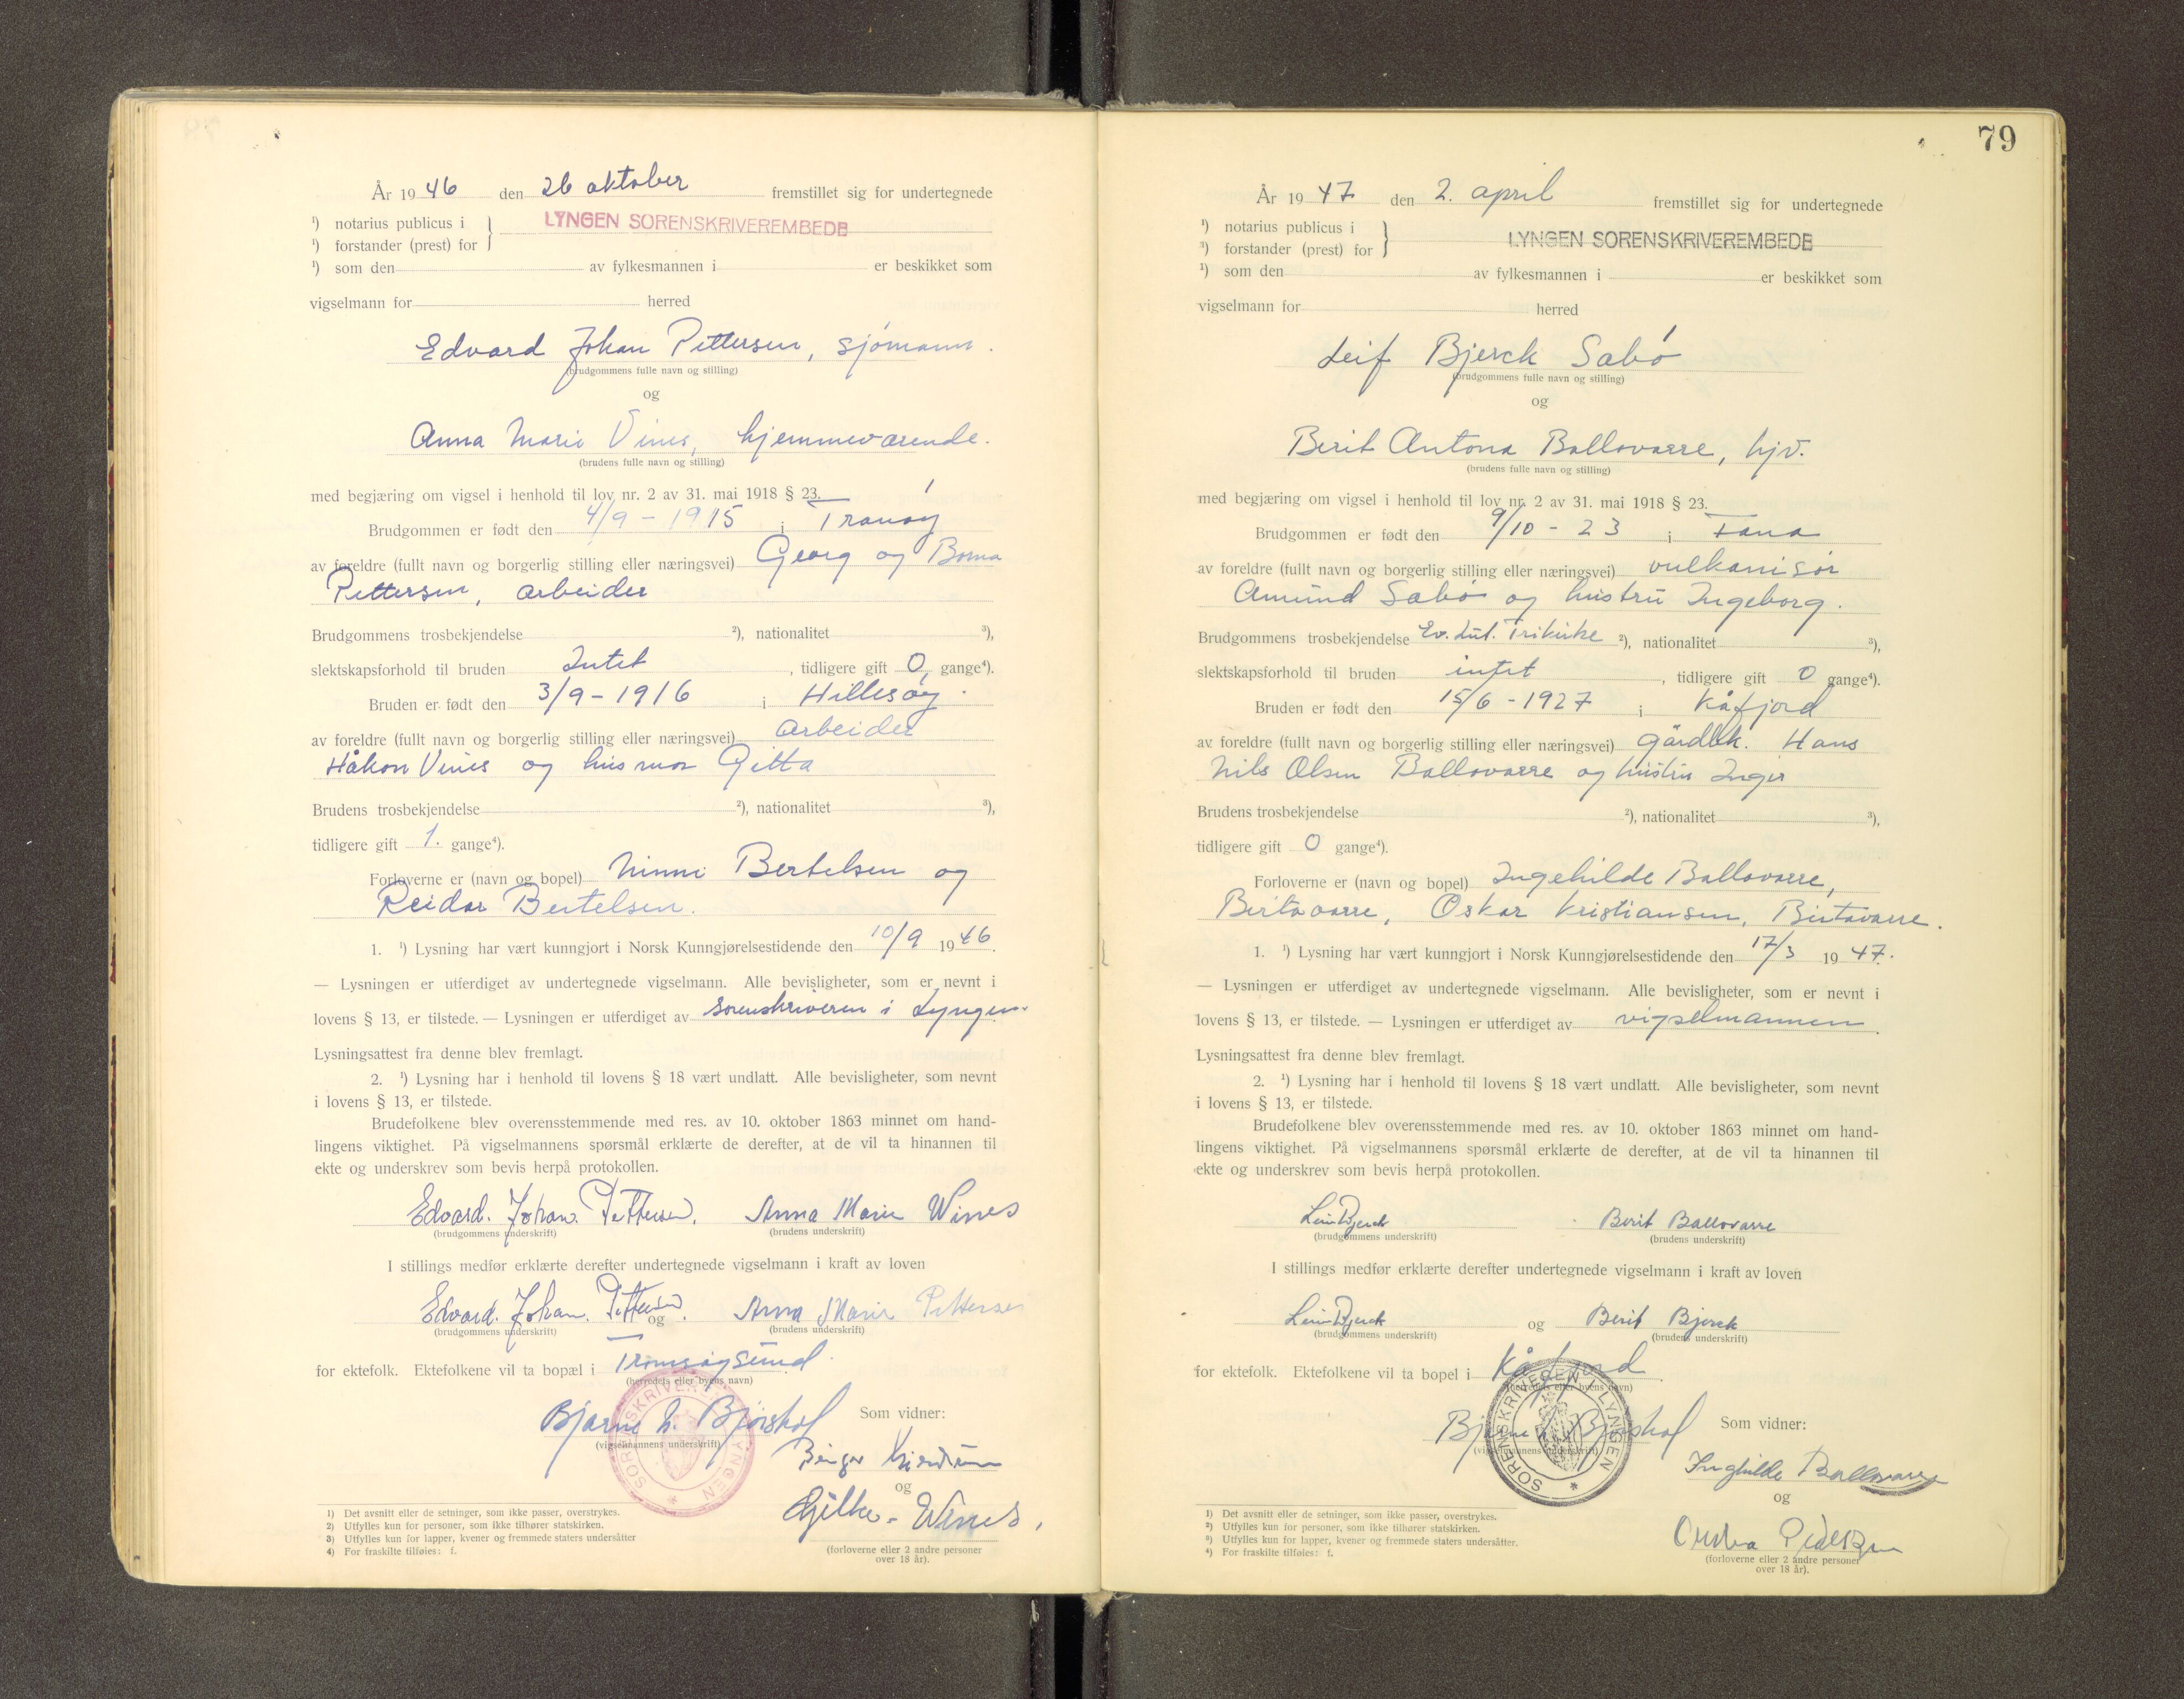 År 19 46 den 26 oktober fremstillet sig for undertegnede
¹) notarius publicus i
LYNGEN SORENSKRIVEREMBEDE
¹) forstander (prest) for
¹) som den av fylkesmannen i er beskikket som
vigselmann for herred
Edvard Johan Pettersen, sjømann.
(brudgommens fulle navn og stilling)
og
Anna Marie Vines, hjemmeværende.
(brudens fulle navn og stilling)
med begjæring om vigsel i henhold til lov nr. 2 av 31. mai 1918 § 23.
Brudgommen er født den 4/9 - 1915 i Tranøy
av foreldre (fullt navn og borgerlig stilling eller næringsvei) Georg og Borna
Pettersen, arbeider
Brudgommens trosbekjendelse ²), nationalitet ³),
slektskapsforhold til bruden Intet , tidligere gift 0, gange⁴).
Bruden er født den 3/9 - 1916 i Hillesøy.
av foreldre (fullt navn og borgerlig stilling eller næringsvei) arbeider
Håkon Vines og husmor Gitta
Brudens trosbekjendelse ²), nationalitet ³),
tidligere gift 1. gange⁴).
Forloverne er (navn og bopel) Ninni Bertelsen og
Reidar Bertelsen.
1. ¹) Lysning har vært kunngjort i Norsk Kunngjørelsestidende den 10/9 19 46.
— Lysningen er utferdiget av undertegnede vigselmann. Alle bevisligheter, som er nevnt i
lovens § 13, er tilstede. — Lysningen er utferdiget av sorenskriveren i Lyngen.
Lysningsattest fra denne blev fremlagt.
2. ¹) Lysning har i henhold til lovens § 18 vært undlatt. Alle bevisligheter, som nevnt
i lovens § 13, er tilstede.
Brudefolkene blev overensstemmende med res. av 10. oktober 1863 minnet om hand-
lingens viktighet. På vigselmannens spørsmål erklærte de derefter, at de vil ta hinannen til
ekte og underskrev som bevis herpå protokollen.
Edvard. Johan. Pettersen. Anna Marie Wines
(brudgommens underskrift) (brudens underskrift)
I stillings medfør erklærte derefter undertegnede vigselmann i kraft av loven
Edvard. Johan. Pettersen. og Anna Marie Pettersen
(brudgommens underskrift) (brudens underskrift)
for ektefolk. Ektefolkene vil ta bopæl i Tromsøysund.
(herredets eller byens navn)
Bjarne L. Bjørshol Som vidner:
(vigselmannens underskrift)
SORENSKRIVEREN I LYNGEN
Birger
og
Wines.
(forloverne eller 2 andre personer
over 18 år).
1) Det avsnitt eller de setninger, som ikke passer, overstrykes.
2) Utfylles kun for personer, som ikke tilhører statskirken.
3) Utfylles kun for lapper, kvener og fremmede staters undersåtter
4) For fraskilte tilføies: f.
79
År 19 47 den 2. april fremstillet sig for undertegnede
¹) notarius publicus i
LYNGEN SORENSKRIVEREMBEDE
¹) forstander (prest) for
¹) som den av fylkesmannen i er beskikket som
vigselmann for herred
Leif Bjerck Sabø
(brudgommens fulle navn og stilling)
og
Berit Antona Ballovarre, hjv.
(brudens fulle navn og stilling)
med begjæring om vigsel i henhold til lov nr. 2 av 31. mai 1918 § 23.
Brudgommen er født den 9/10 - 23 i Fana
av foreldre (fullt navn og borgerlig stilling eller næringsvei) vulkanisør
Amund Sabø og hustru Ingeborg.
Brudgommens trosbekjendelse Ev. Lut. Frikirke ²), nationalitet ³),
slektskapsforhold til bruden intet , tidligere gift 0 gange⁴).
Bruden er født den 15/6 - 1927 i Kåfjord
av foreldre (fullt navn og borgerlig stilling eller næringsvei) gårdbk. Hans
Nils Olsen Ballovarre og hustru Inger
Brudens trosbekjendelse ²), nationalitet ³),
tidligere gift 0 gange⁴).
Forloverne er (navn og bopel) Ingehilde Ballovarre,
Birtavarre, Oskar Kristiansen, Birtavarre.
1. ¹) Lysning har vært kunngjort i Norsk Kunngjørelsestidende den 17/3 19 47.
— Lysningen er utferdiget av undertegnede vigselmann. Alle bevisligheter, som er nevnt i
lovens § 13, er tilstede. — Lysningen er utferdiget av vigselmannen.
Lysningsattest fra denne blev fremlagt.
2. ¹) Lysning har i henhold til lovens § 18 vært undlatt. Alle bevisligheter, som nevnt
i lovens § 13, er tilstede.
Brudefolkene blev overensstemmende med res. av 10. oktober 1863 minnet om hand-
lingens viktighet. På vigselmannens spørsmål erklærte de derefter, at de vil ta hinannen til
ekte og underskrev som bevis herpå protokollen.
Leif Bjerck Berit Ballovarre
(brudgommens underskrift) (brudens underskrift)
I stillings medfør erklærte derefter undertegnede vigselmann i kraft av loven
Leif Bjerck og Berit Bjerck
(brudgommens underskrift) (brudens underskrift)
for ektefolk. Ektefolkene vil ta bopel i Kåfjord
(herredets eller byens navn)
Bjarne L. Bjørshol Som vidner:
(vigselmannens underskrift)
SORENSKRIVEREN I LYNGEN
Inghilde Ballovarre
og
Pedersen
(forloverne eller 2 andre personer
over 18 år).
¹) Det avsnitt eller de setninger, som ikke passer, overstrykes.
²) Utfylles kun for personer, som ikke tilhører statskirken.
³) Utfylles kun for lapper, kvener og fremmede staters undersåtter.
⁴) For fraskilte tilføies: f.